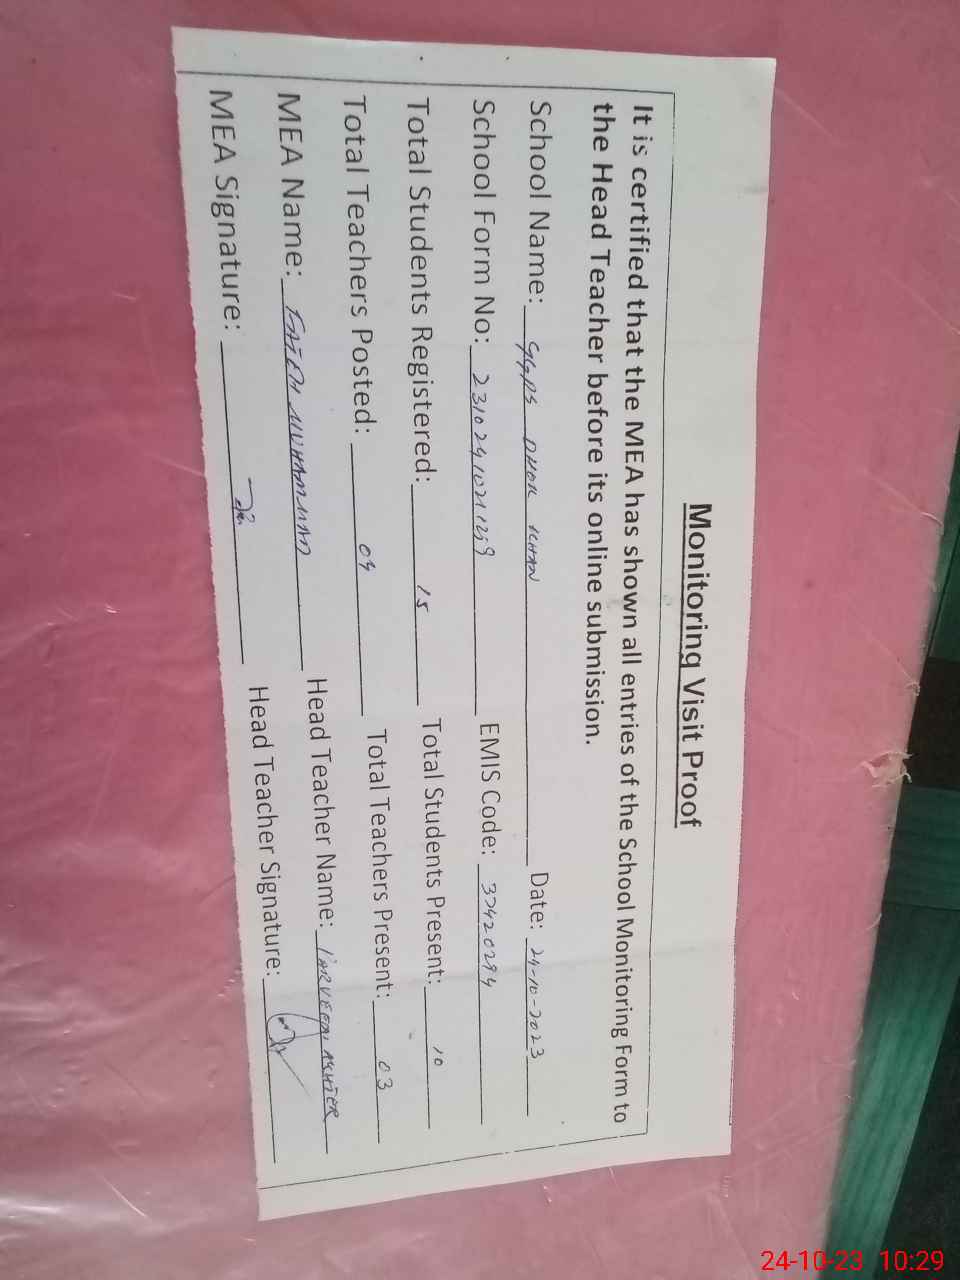 Monitoring Visit Proof
It is certified that the MEA has shown all entries of the School Monitoring Form to
the Head Teacher before its online submission.
School Name: GGPS DHOK KHAN Date: 24-10-2023
School Form No: EMIS Code: 37420294
Total Students Registered: 15 Total Students Present: 10
Total Teachers Posted: 04 Total Teachers Present: 03
MEA Name: FATEH MUHAMMAD Head Teacher Name: PARVEEN AKHTER
MEA Signature: Head Teacher Signature:
24-10-23 10:29